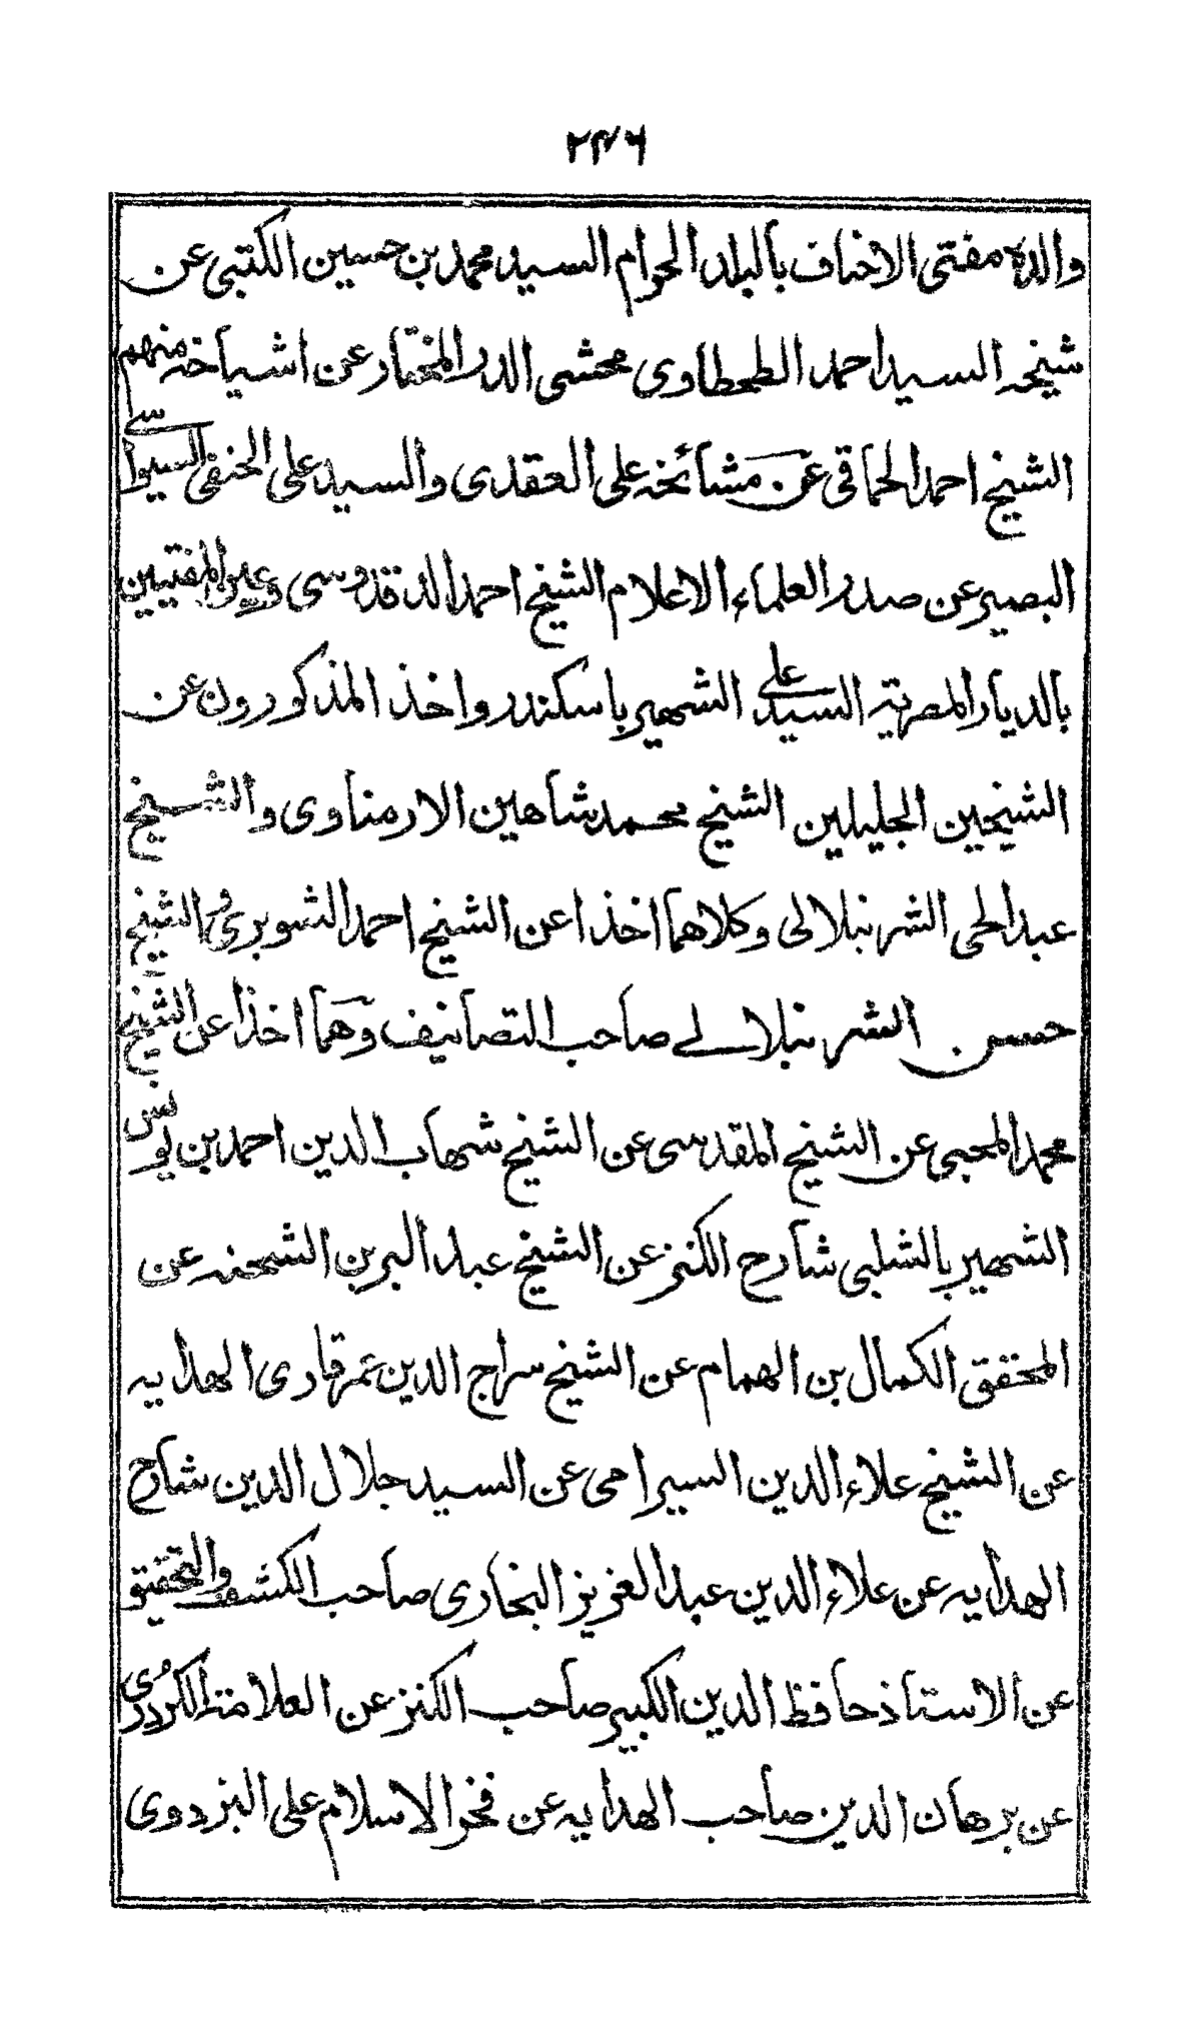 ۲۴۶
والده مفتى الاحناف بالبلد الحرام السيد محمد بن حسين الكتبى عن
شيخه السيد احمد الطحطاوى محشى الدر المختار عن اشياخه منهم
الشيخ احمد الحماقى عن مشائخه على العقدى والسيد على الحنفى السيواسے
البصير عن صدر العلماء الاعلام الشيخ احمد الدقدوسى وعين المفتيين
بالديار المصرية السيد على الشهير باسكندر واخذ المذكورون عن
الشيخين الجليلين الشيخ محمد شاهين الارمناوى والشيخ
عبد الحى الشرنبلالى وكلاهما اخذا عن الشيخ احمد الشوبرى والشيخ
حسن الشرنبلالے صاحب التصانيف وهما اخذا عن الشيخ
محمد المحبى عن الشيخ المقدسى عن الشيخ شهاب الدين احمد بن يونس
الشهير بالشلبى شارح الكنز عن الشيخ عبد البر بن الشحنه عن
المحقق الكمال بن الهمام عن الشيخ سراج الدين عمر قارى الهدايه
عن الشيخ علاء الدين السيرامى عن السيد جلال الدين شارح
الهدايه عن علاء الدين عبد العزيز البخارى صاحب الكشف والتحقيق
عن الاستاذ حافظ الدين الكبير صاحب الكنز عن العلامة الكردرى
عن برهان الدين صاحب الهدايه عن فخر الاسلام على البزدوى